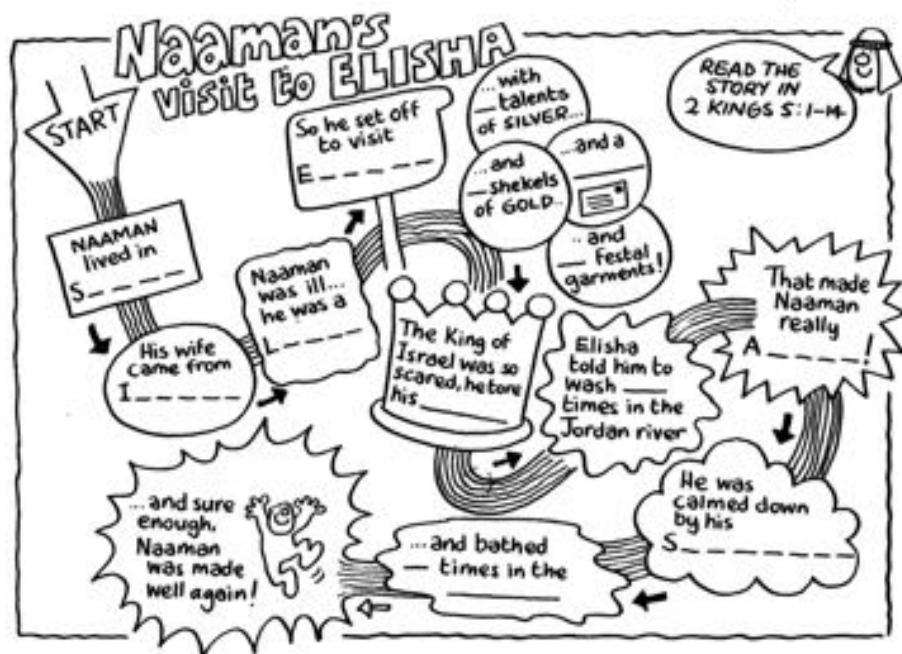 Naaman's
visit to ELISHA
READ THE
STORY IN
2 KINGS 5:1-14
START
NAAMAN
lived in
S_ _ _ _
His wife
came from
I_ _ _ _ _
Naaman
was ill...
he was a
L_ _ _ _
So he set off
to visit
E_ _ _ _ _
...with
__talents
of SILVER...
...and
__shekels
of GOLD...
...and a
______
...and
___ festal
garments!
The King of
Israel was so
scared, he tore
his ______
Elisha
told him to
wash ____
times in the
Jordan river
That made
Naaman
really
A_ _ _ _ !
He was
calmed down
by his
S_ _ _ _ _ _ _
...and bathed
__ times in the
________
...and sure
enough,
Naaman
was made
well again!